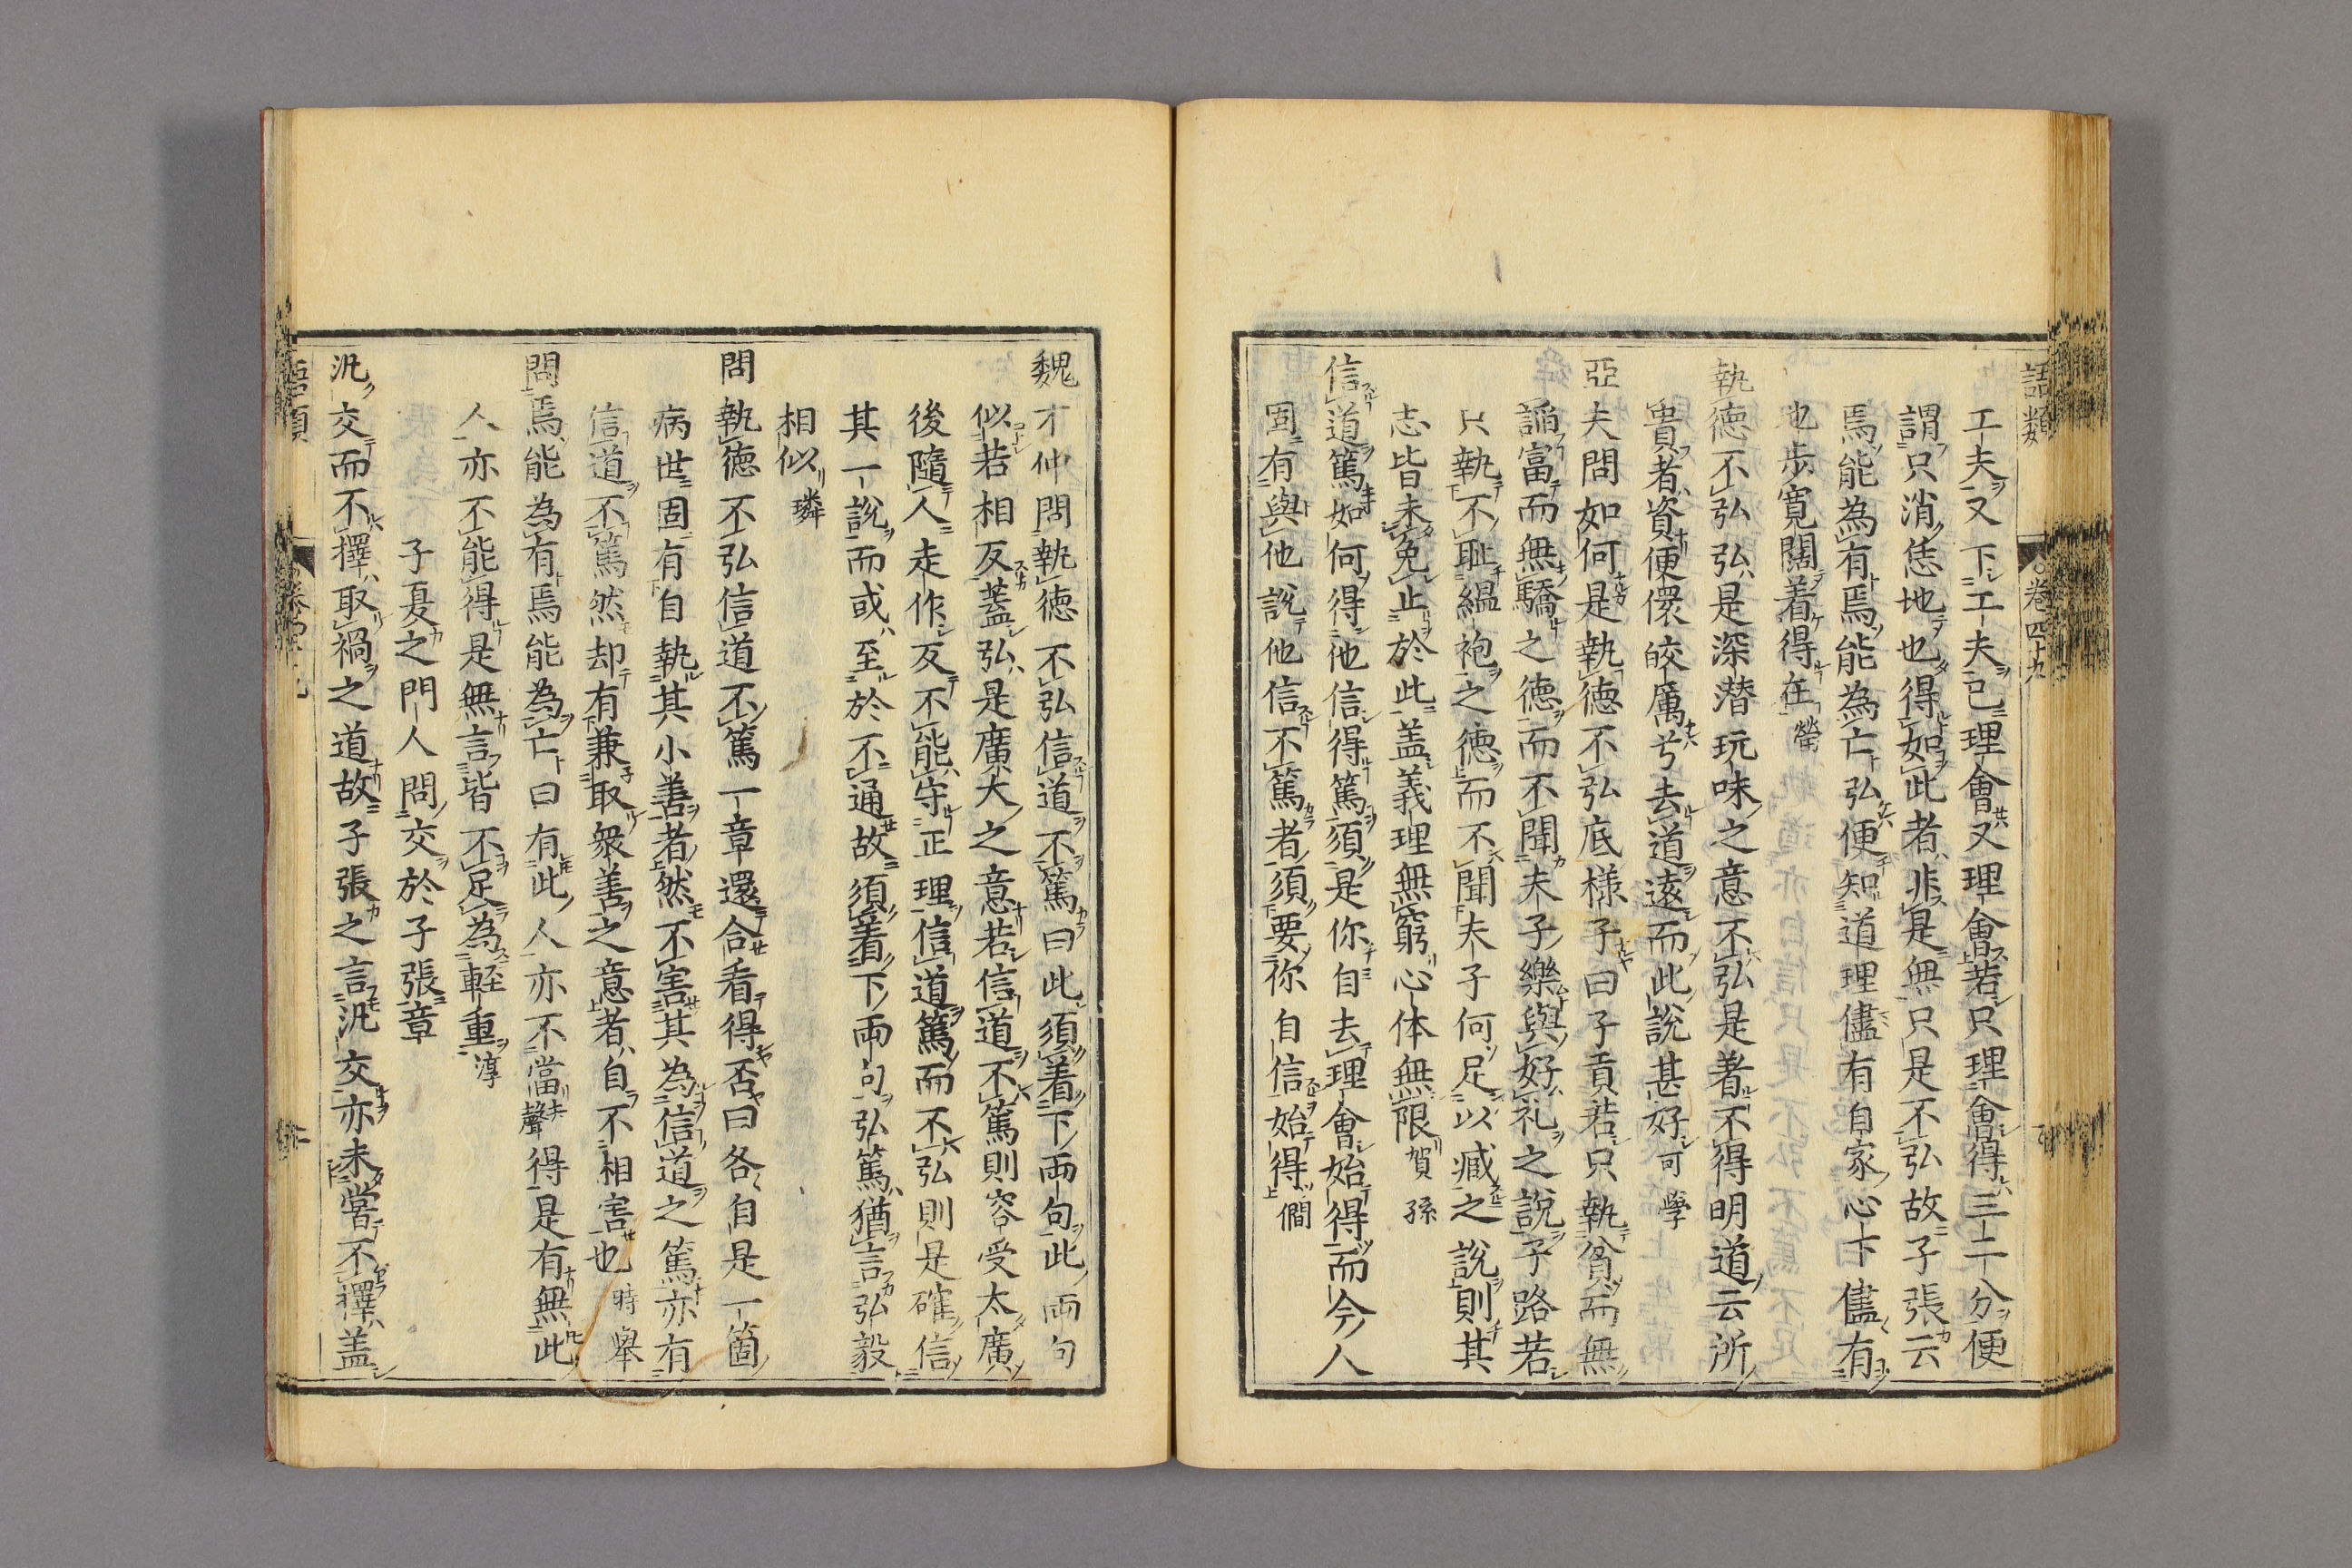 語類 卷四十九
工夫又下工夫已理會又理會若只理會得三二分便
謂只消恁地也得如此者非是無只是不弘故子張云
焉能為有焉能為亡弘便知道理儘有自家心下儘有
地步寬闊着得在 螢
執德不弘弘是深潜玩味之意不弘是著不得明道云所
貴者資便儇皎厲兮去道遠而此說甚好 可學
亞夫問如何是執德不弘底様子曰子貢若只執貧而無
謟富而無驕之德而不聞夫子樂與好礼之說子路若
只執不耻緼袍之德而不聞夫子何足以臧之說則其
志皆未免止於此盖義理無窮心体無限 賀孫
信道篤如何得他信得篤須是你自去理會始得而今人
固有與他說他信不篤者須要你自信始得 僩
魏才仲問執德不弘信道不篤曰此須着下兩句此兩句
似若相反蓋弘是廣大之意若信道不篤則容受太廣
後隨人走作反不能守正理信道篤而不弘則是確信
其一說而或至於不通故須着下兩句弘篤猶言弘毅
相似 璘
問執德不弘信道不篤一章還合看得否曰各自是一箇
病世固有自執其小善者然不害其為信道之篤亦有
信道不篤然却有兼取衆善之意者自不相害也 時舉
問焉能為有焉能為亡曰有此人亦不當去聲得是有無此
人亦不能得是無言皆不足為輕重 淳
子夏之門人問交於子張章
汎交而不擇取禍之道故子張之言汎交亦未甞不擇盖
語類